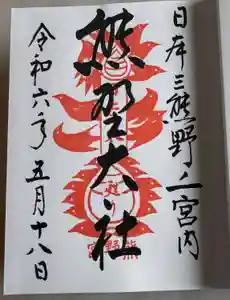 日本三熊野ノ一宮内
熊野大社
令和六年五月十八日